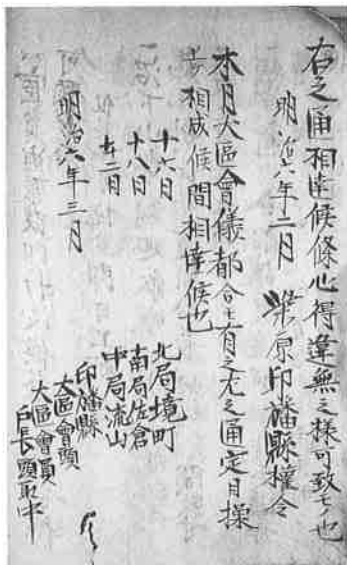 右之通相達候條心得違無之様可致モノ也
明治六年二月 柴原印旛縣權令
本月大區會儀都合ニ有之左之通定日操
替相成候間相達候也
十六日 北局境町
十八日 南局佐倉
廿二日 中局流山
明治六年三月 印旛縣
大區會頭
大區會員
戸長頭取中